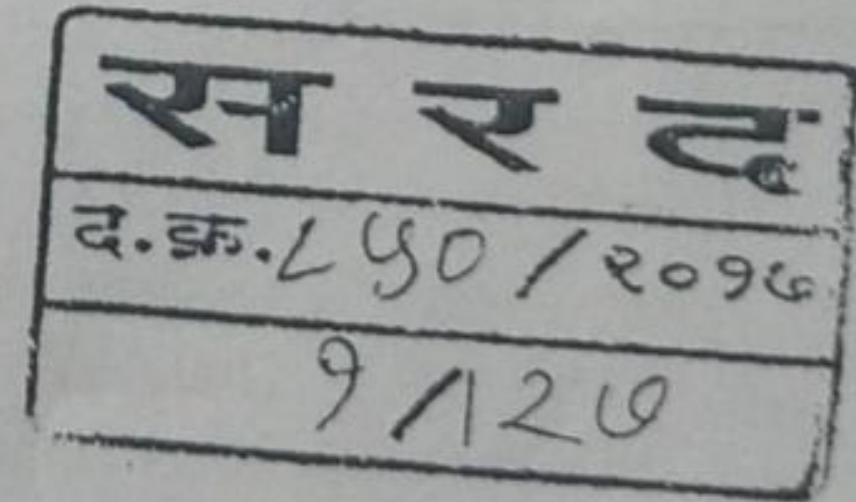 स र द
द.क्र. ८५० / २०१७
१ / १२७